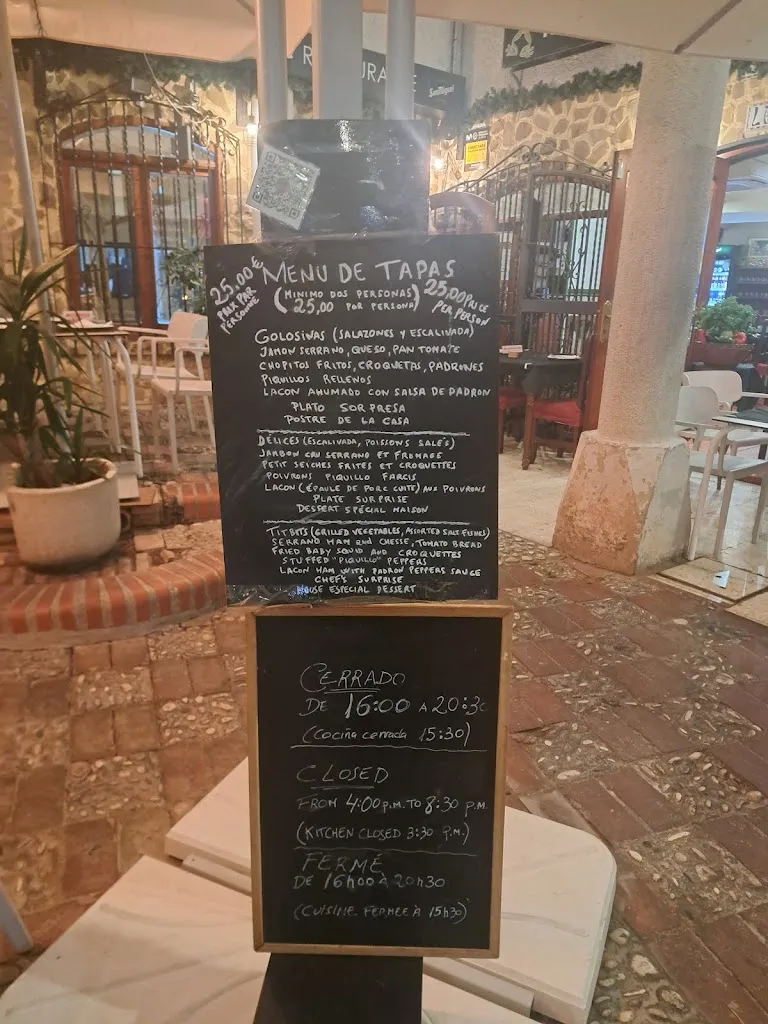 RAURA
San Miguel
25,00€
PRIX PAR
PERSONNE
MENU DE TAPAS
(MINIMO DOS PERSONAS)
25,00 POR PERSONA)
25,00 PRICE
PER PERSON
GOLOSINAS (SALAZONES Y ESCALIVADA)
JAMON SERRANO, QUESO, PAN TOMATE
CHOPITOS FRITOS, CROQUETAS, PADRONES
PIQUILLOS RELLENOS
LACON AHUMADO CON SALSA DE PADRON
PLATO SORPRESA
POSTRE DE LA CASA
DÉLICES (ESCALIVADA, POISSONS SALÉS)
JAMBON CRU SERRANO ET FROMAGE
PETIT SEICHES FRITES ET CROQUETTES
POIVRONS PIQUILLO FARCIS
LACON (ÉPAULE DE PORC CUITE) AUX POIVRONS
PLATE SURPRISE
DESSERT SPÉCIAL MAISON
TITBITS (GRILLED VEGETABLES, ASSORTED SALT FISHES)
SERRANO HAM and CHESSE, TOMATO BREAD
FRIED BABY SQUID AND CROQUETTES
STUFFED "PIQUILLO" PEPPERS
LACON HAM WITH PADRON PEPPERS SAUCE
CHEF'S SURPRISE
HOUSE ESPECIAL DESSERT
CERRADO
DE 16:00 A 20:30
(Cocina cerrada 15:30)
CLOSED
FROM 4:00 P.M. TO 8:30 P.M.
(KITCHEN CLOSED 3:30 P.M.)
FERMÉ
DE 16h00 À 20h30
(CUISINE FERMÉE À 15h30)